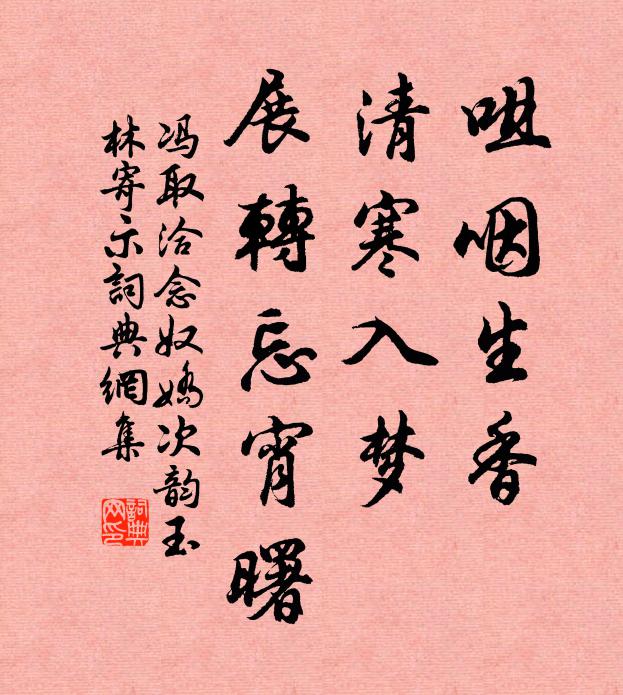 咀咽生香
清寒入梦
展轉忘宵曙
冯取洽念奴嬌次韵玉
林寄示詞典網集
詞典
网印